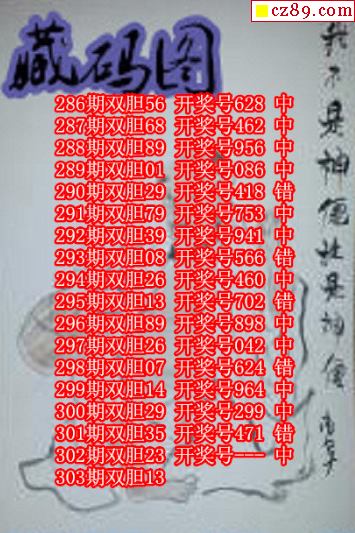 cz89.com
藏码图
286期双胆56 开奖号628 中
287期双胆68 开奖号462 中
288期双胆89 开奖号956 中
289期双胆01 开奖号086 中
290期双胆29 开奖号418 错
291期双胆79 开奖号753 中
292期双胆39 开奖号941 中
293期双胆08 开奖号566 错
294期双胆26 开奖号460 中
295期双胆13 开奖号702 错
296期双胆89 开奖号898 中
297期双胆26 开奖号042 中
298期双胆07 开奖号624 错
299期双胆14 开奖号964 中
300期双胆29 开奖号299 中
301期双胆35 开奖号471 错
302期双胆23 开奖号--- 中
303期双胆13
我不是神仙